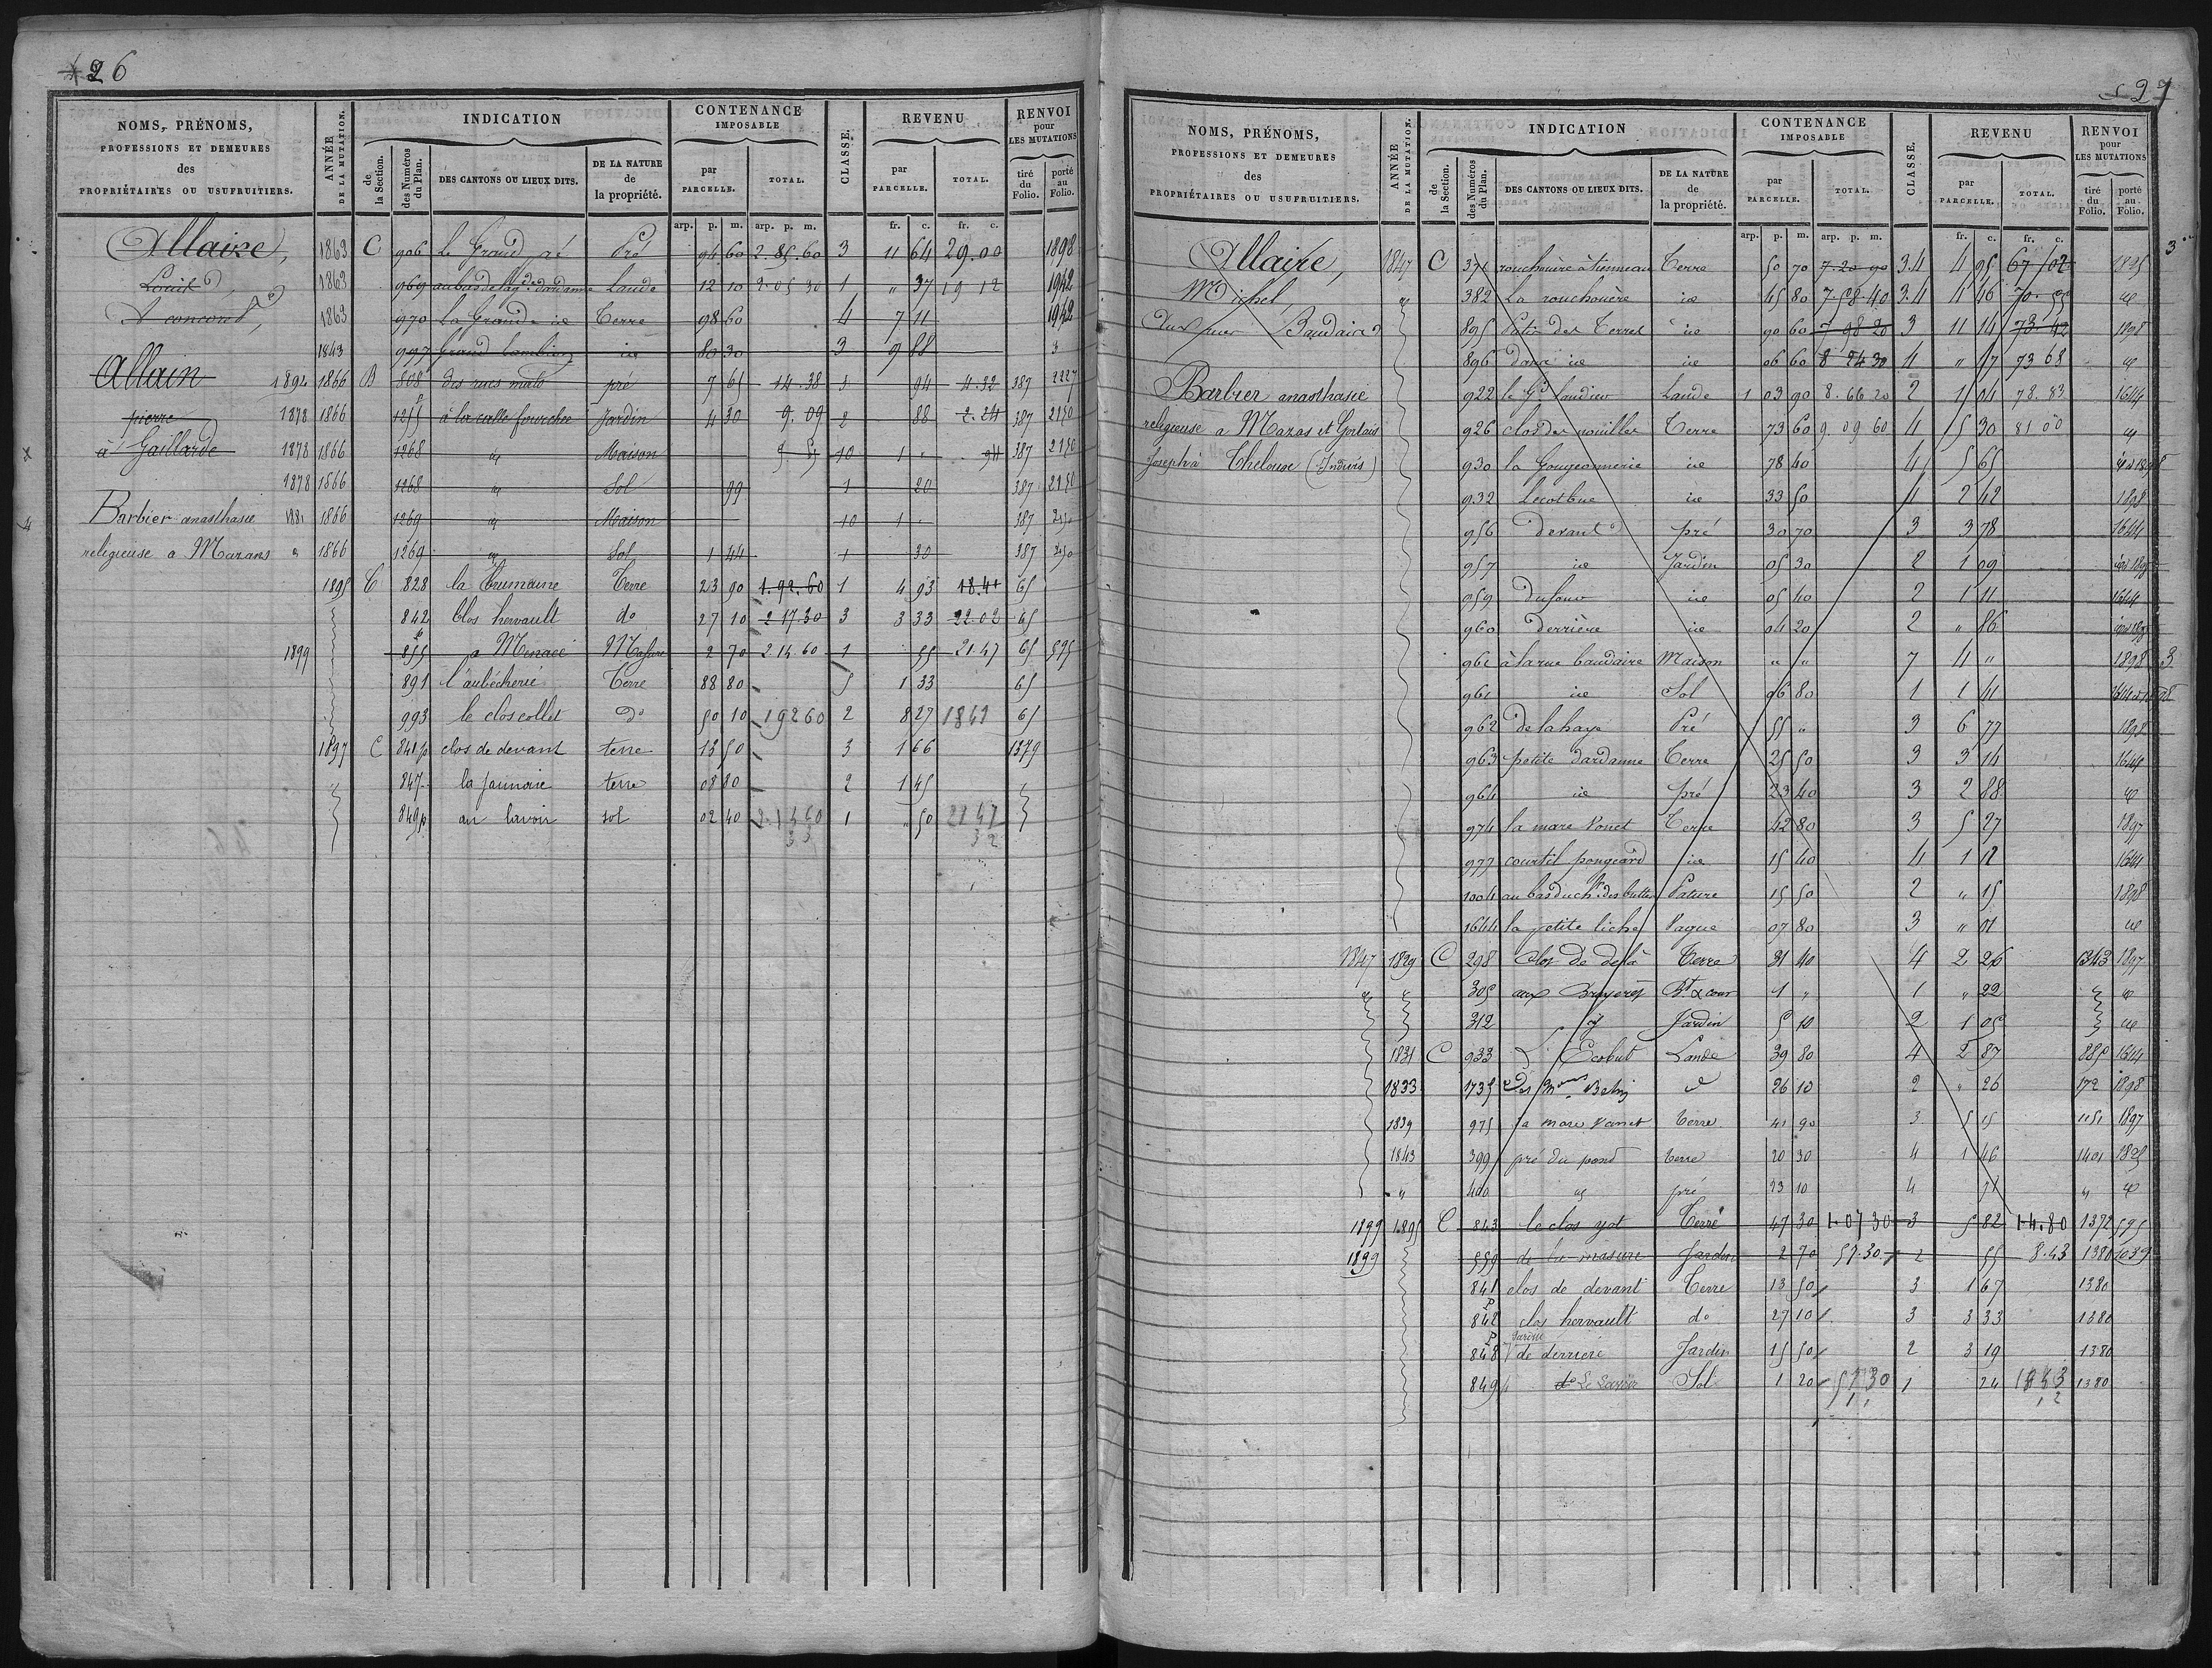 26
NOMS, PRÉNOMS, PROFESSIONS ET DEMEURES des PROPRIÉTAIRES OU USUFRUITIERS.
ANNÉE DE LA MUTATION.
INDICATION
de la Section.
des Numéros du Plan.
DES CANTONS OU LIEUX DITS.
DE LA NATURE de la propriété.
CONTENANCE IMPOSABLE
par PARCELLE.
TOTAL.
CLASSE.
REVENU
par PARCELLE.
TOTAL.
RENVOI pour LES MUTATIONS
tiré du Folio.
porté au Folio.
arp. p. m. arp. p. m. fr. c. fr. c.
Allaire, 1863 C 906 Le Grand Pré 94 60 2.85.60 3 11 64 29.00 1898
Louis 1863 969 Lande 12 10 2.05 30 1 " 37 19 12 1942
1863 970 La Grande ie Terre 98 60 4 7 11 1942
1843 997 Grand ie 80 30 3 9 88 3
Allain 1892 1866 B 808 des rues pré 7 65 14.38 3 94 4.32 387 2227
pierre 1878 1866 1255 à la calle fourchee Jardin 4 30 9.09 2 88 2.24 387 2150
à Gaillarde 1878 1866 1268 id Maison 10 1 " 94 387 2150
1878 1866 1268 id Sol 99 1 20 387 2150
Barbier anasthasie 1881 1866 1269 id Maison 10 1 " 387
religieuse a Mazans " 1866 1269 id Sol 1 44 1 30 387
1895 C 828 la Trumaine Terre 23 90 1.92.60 1 4 93 18.41 65
842 Clos hervault do 27 10 2 17.30 3 3 33 22.02 65
1899 855 a Menace Masure 2 70 2 14 60 1 55 21.47 65 595
891 l'aubécherie Terre 88 80 5 1 33 65
993 le clos collet do 50 10 19260 2 8 27 1841 65
1897 C 841p clos de devant terre 13 50 3 1 66 1379
847 la Jaunaie terre 08 80 2 1 45
849p au lavoir sol 02 40 2.1460 1 " 50 2147
33 32
27
NOMS, PRÉNOMS, PROFESSIONS ET DEMEURES des PROPRIÉTAIRES OU USUFRUITIERS.
ANNÉE DE LA MUTATION.
INDICATION
de la Section.
des Numéros du Plan.
DES CANTONS OU LIEUX DITS.
DE LA NATURE de la propriété.
CONTENANCE IMPOSABLE
par PARCELLE.
TOTAL.
CLASSE.
REVENU
par PARCELLE.
TOTAL.
RENVOI pour LES MUTATIONS
tiré du Folio.
porté au Folio.
arp. p. m. arp. p. m. fr. c. fr. c.
Allaire, 1847 C 371 rouchouère à tienneau Terre 50 70 7.20 90 3.4 4 95 67 02 1895 3
Michel, 382 La rouchouère ie 45 80 7.58.40 3.4 4 46 70.55 id
Baudaire 895 Patis des Terres ie 90 60 7 98 20 3 11 14 73.42 1898
896 dans ie ie 06 60 8 24 30 4 " 17 73 68 id
Barbier anasthasie 922 le Gd landieu Lande 1 03 90 8.66 20 2 1 04 78.83 1644
religieuse a Mazas et 926 clos des nouilles Terre 73 60 9.09 60 4 5 30 81 00 id
Joseph à Thelouse (Indivis) 930 la Gougeonnerie ie 78 40 4 5 65
932 Lecotbue ie 33 50 4 2 42 1898
956 devant pré 30 70 3 3 78 1644
957 ie Jardin 05 30 2 1 09
959 dufour ie 05 40 2 1 11 1644
960 derrière ie 04 20 2 " 86
961 à la rue baudaire Maison " " 7 4 " 1898 3
961 ie Sol 06 80 1 1 41
962 de la haye Pré 55 " 3 6 77 1898
963 petite dardanne Terre 25 50 3 3 14 1644
964 ie pré 23 40 3 2 88 id
974 la mare Vonet Terre 42 80 3 5 27 1897
977 courtil pougeard ie 15 40 4 1 12 1644
1004 au bas du ch. des buttes Pature 15 50 2 " 15 1898
1644 la petite liche Vague 07 80 3 " 01 id
1847 1829 C 298 Clos de delà Terre 31 40 4 2 26 1343 1897
305 aux Bruyeres Bt & cour 1 " 1 " 22 id
312 id Jardin 5 10 2 1 05 id
1831 C 933 Ecobut Lande 39 80 4 2 87 885 1644
1833 1735 Des 26 10 2 " 26 172 1898
1839 975 la mare Vanet terre 41 90 3 5 15 1151 1897
1843 399 pré du pond terre 20 30 4 1 46 1401 1895
" 400 id pré 23 10 4 71 " id
1899 1895 C 843 le clos yot Terre 47 30 1.07 30 3 5 82 14.80 1372 595
1899 559 de la masure Jardin 2 70 57.30 2 55 8.43 1380 1039
841 clos de devant Terre 13 50 3 1 67 1380
p 842 clos hervault do 27 10 3 3 33 1380
p 848 de derriere Jardin 15 50 2 3 19 1380
849 Sol 1 20 5730 1 24 1380